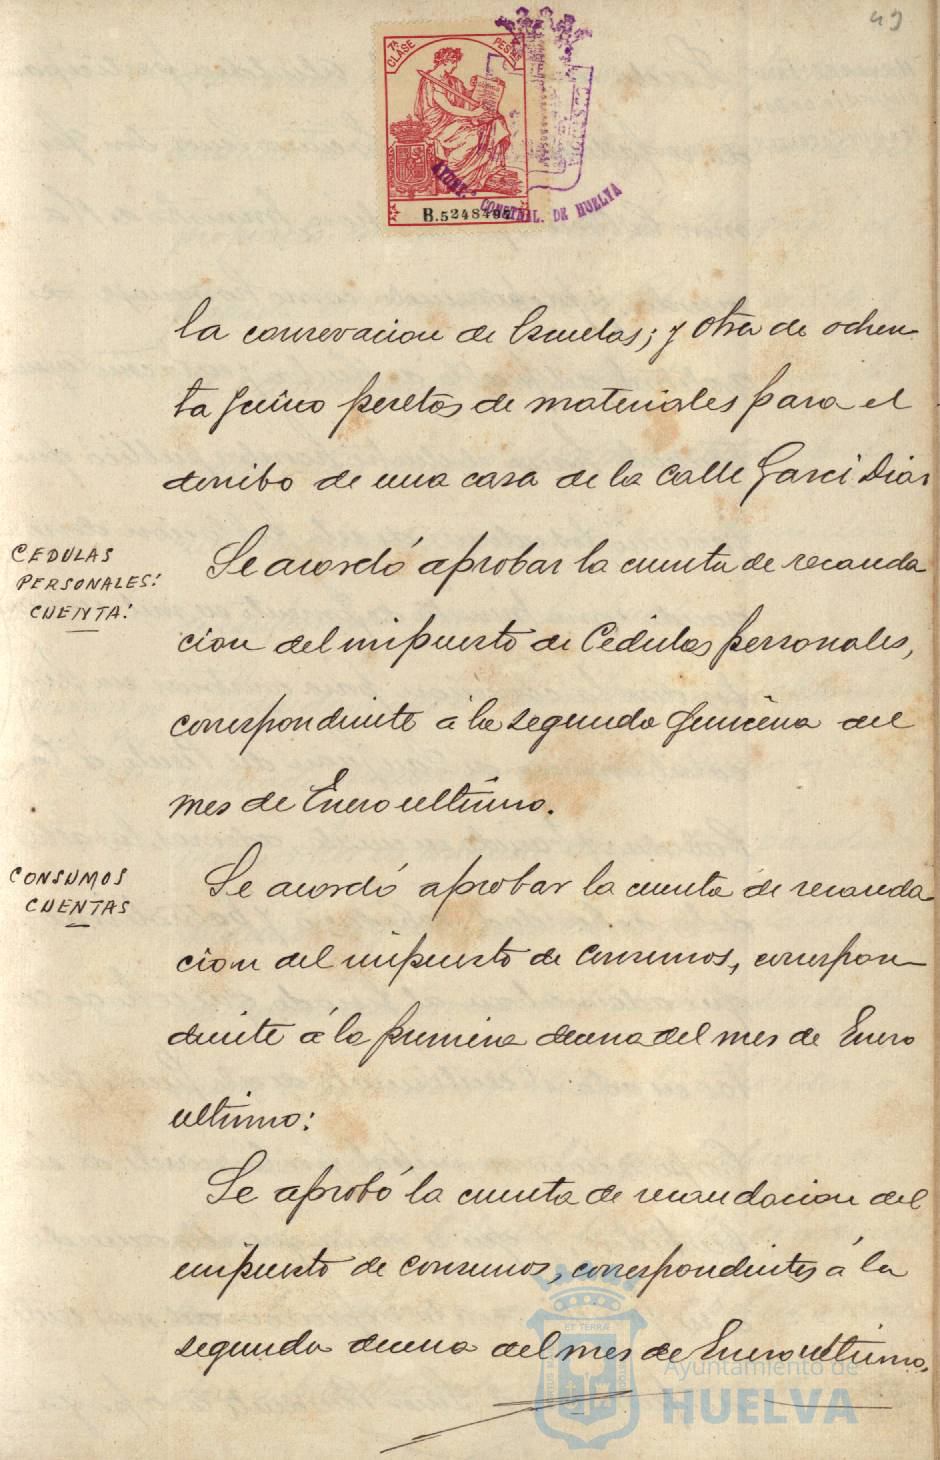 49
7ª CLASE
B.5248495
AYUNT.º CONSTNAL. DE HUELVA
la conservacion de Escuelas; y otra de ochen
ta y cinco pesetas de materiales para el
derribo de una casa de la calle Garci Dias
CEDULAS
PERSONALES:
CUENTA:
Se acordó aprobar la cuenta de recauda
cion del impuesto de Cedulas personales,
correspondiente á la segunda quincena del
mes de Enero ultimo.
CONSUMOS
CUENTAS
Se acordó aprobar la cuenta de recauda
cion del impuesto de consumos, correspon-
diente á la primera decena del mes de Enero
ultimo:
Se aprobó la cuenta de recaudacion del
impuesto de consumos, correspondientes á la
segunda decena del mes de Enero ultimo.
Ayuntamiento de
HUELVA